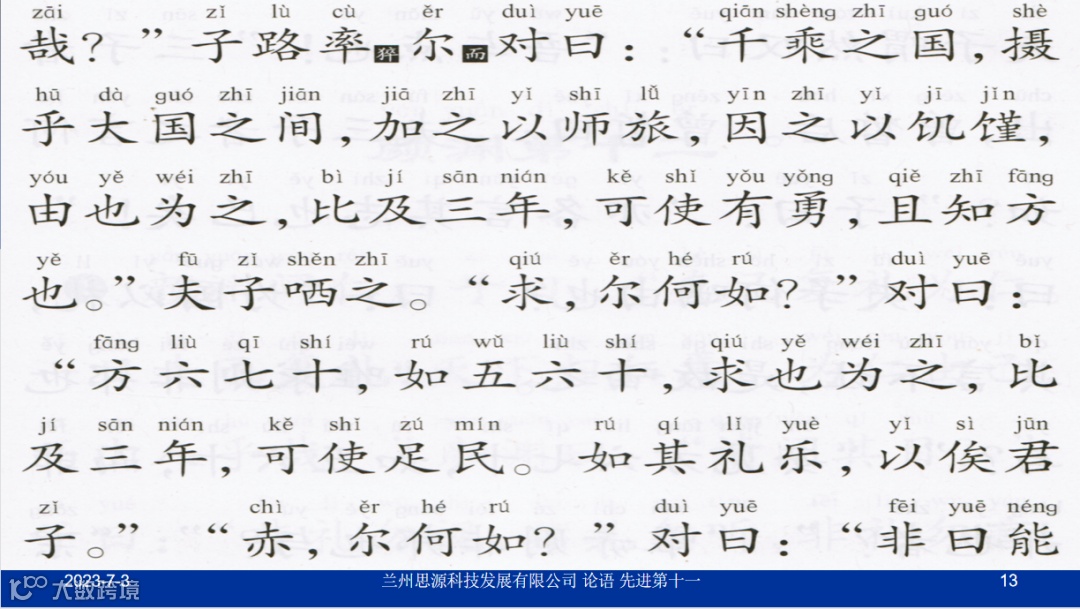 zāi zǐ lù cù ěr duì yuē qiān shèng zhī guó shè
哉？”子路率猝尔而对曰：“千乘之国，摄
hū dà guó zhī jiān jiā zhī yǐ shī lǚ yīn zhī yǐ jī jǐn
乎大国之间，加之以师旅，因之以饥馑，
yóu yě wéi zhī bǐ jí sān nián kě shǐ yǒu yǒng qiě zhī fāng
由也为之，比及三年，可使有勇，且知方
yě fū zǐ shěn zhī qiú ěr hé rú duì yuē
也。”夫子哂之。“求，尔何如？”对曰：
fāng liù qī shí rú wǔ liù shí qiú yě wéi zhī bǐ
“方六七十，如五六十，求也为之，比
jí sān nián kě shǐ zú mín rú qí lǐ yuè yǐ sì jūn
及三年，可使足民。如其礼乐，以俟君
zǐ chì ěr hé rú duì yuē fēi yuē néng
子。”“赤，尔何如？”对曰：“非曰能
2023-7-3 兰州思源科技发展有限公司 论语 先进第十一 13
大数跨境